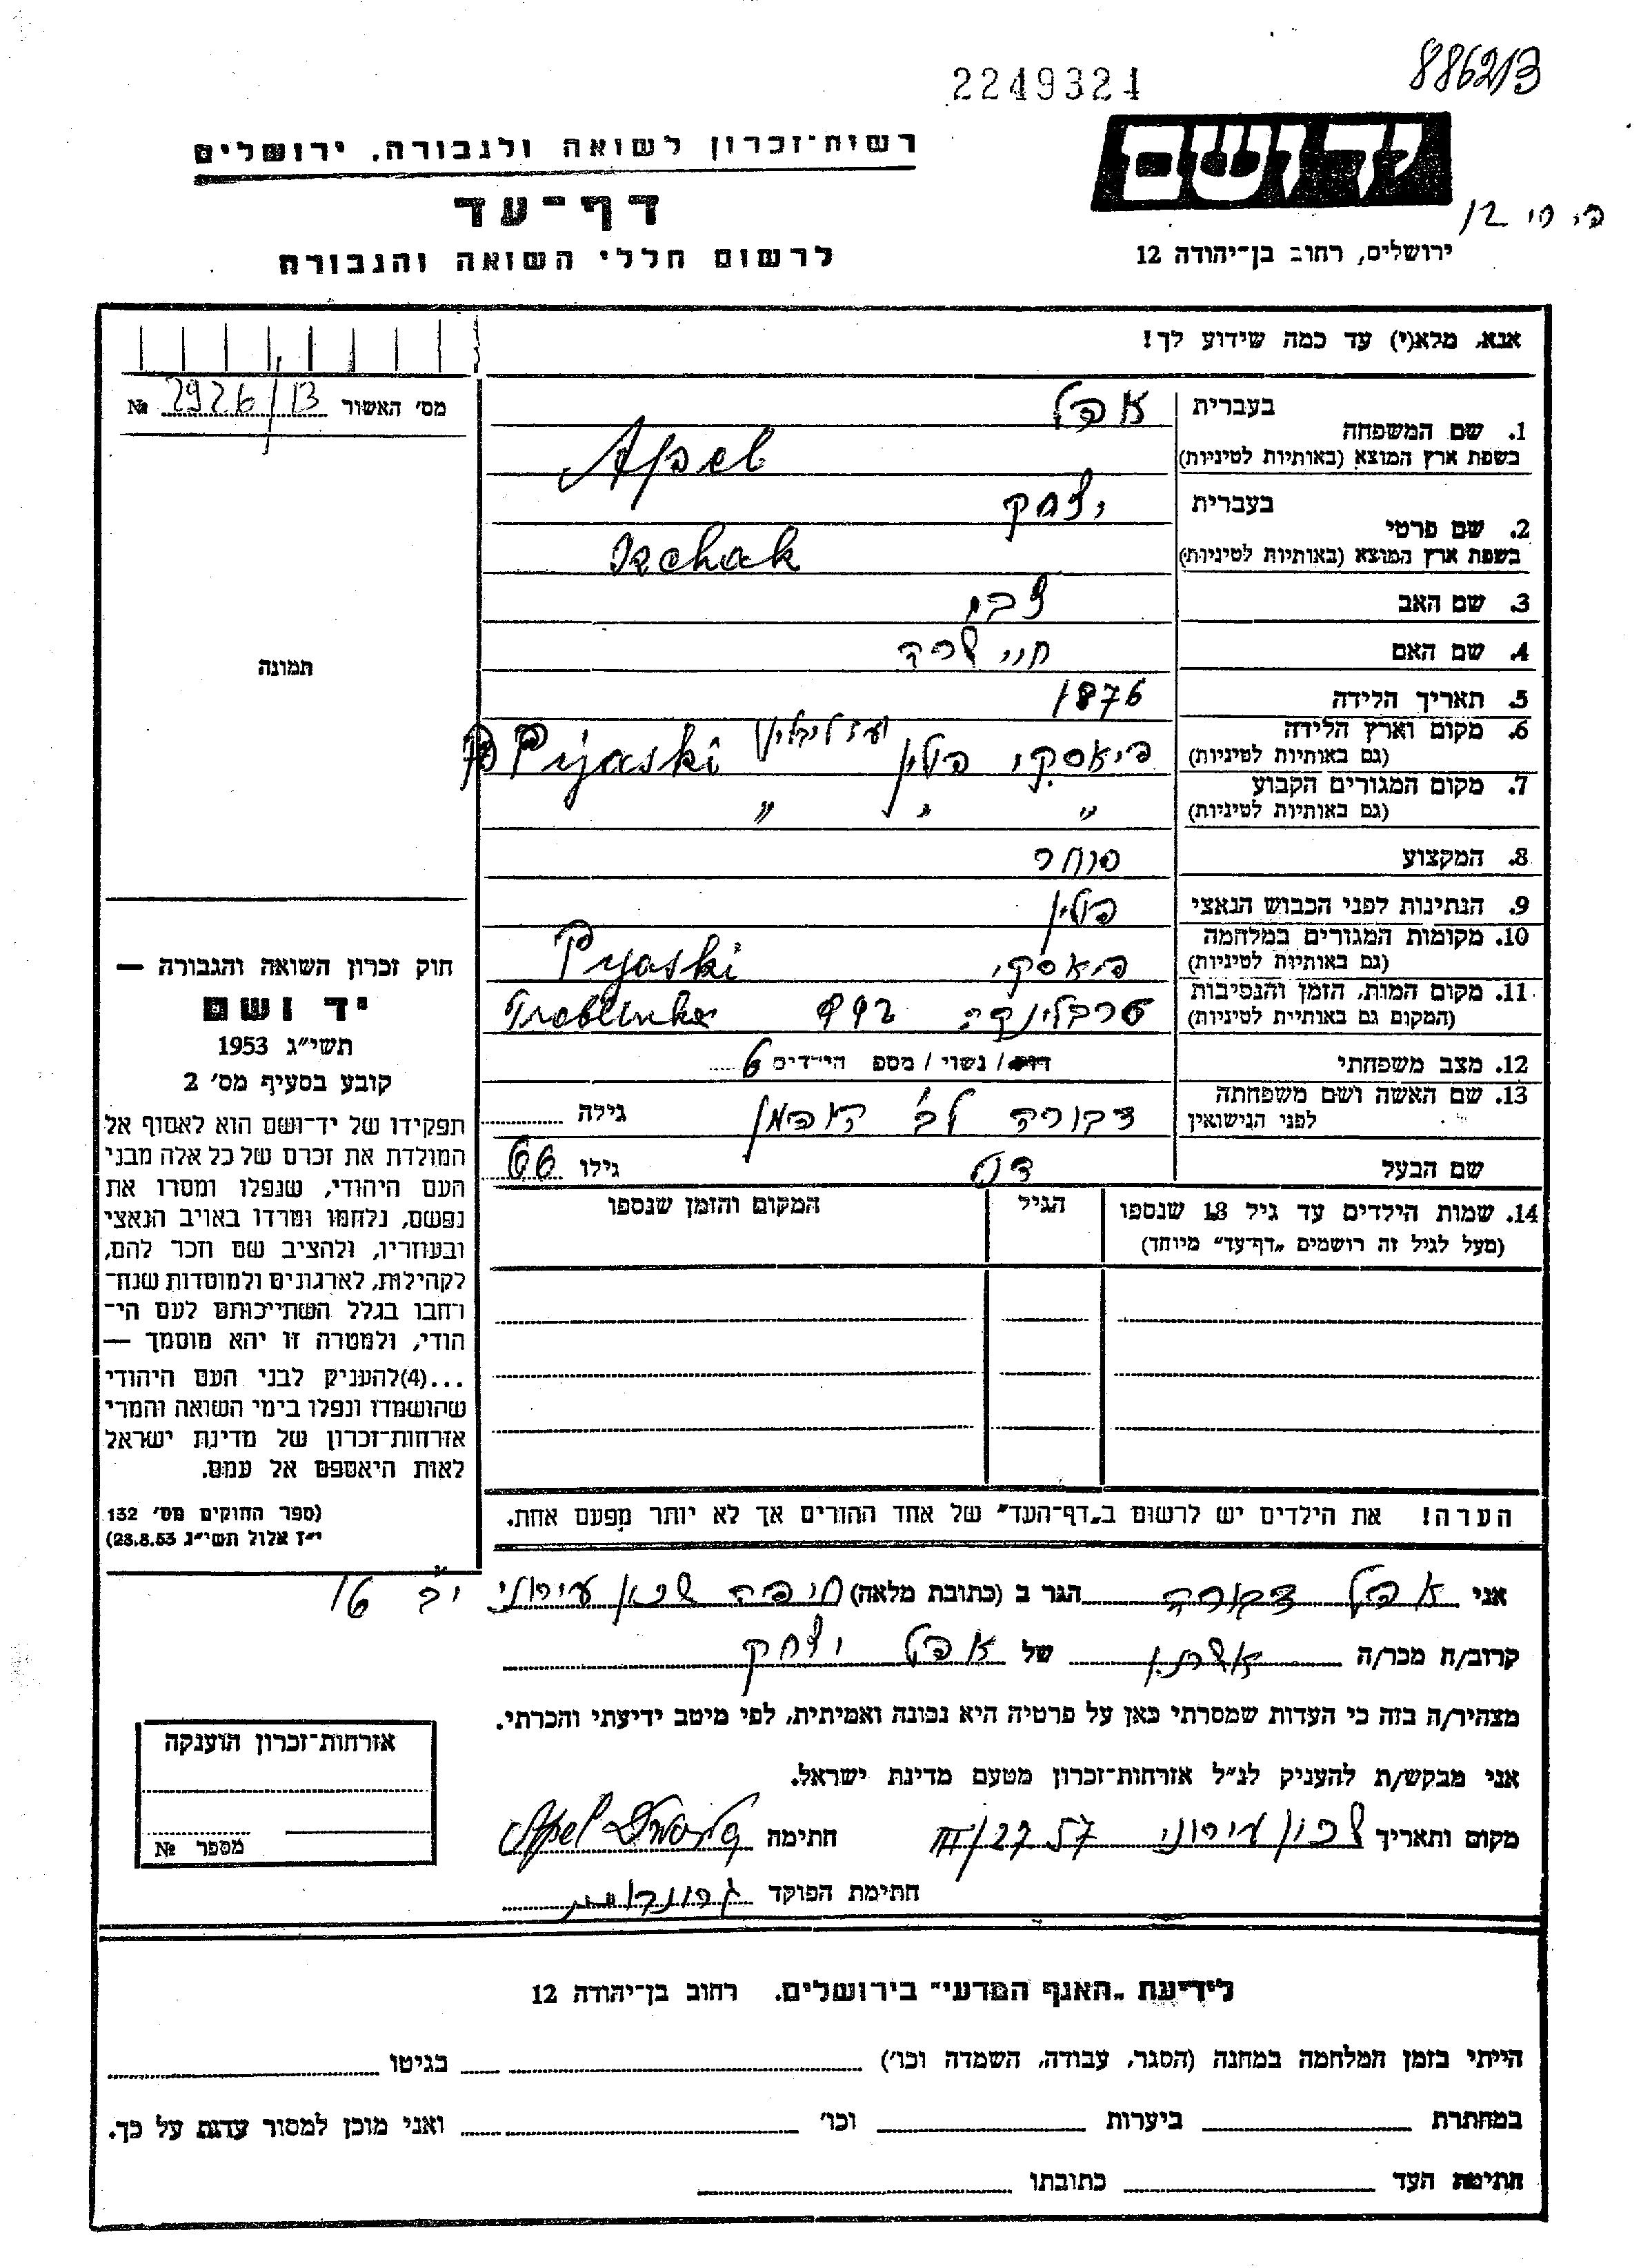 88621/3
2249324
רשות־זכרון לשואה ולגבורה, ירושלים
דף־עד
לרשום חללי השואה והגבורה
ידושם
ירושלים, רחוב בן־יהודה 12
12
אנא, מלא(י) עד כמה שידוע לך!
מס׳ האשור № 2926/13
תמונה
1. שם המשפחה בעברית אפל
בשפת ארץ המוצא (באותיות לטיניות) Apel
2. שם פרטי בעברית יצחק
בשפת ארץ המוצא (באותיות לטיניות) Izchak
3. שם האב צבי
4. שם האם חיי שרה
5. תאריך הלידה 1876
6. מקום וארץ הלידה (גם באותיות לטיניות) פיאסקי פולין Piyaski
7. מקום המגורים הקבוע (גם באותיות לטיניות) " " "
8. המקצוע סוחר
9. הנתינות לפני הכבוש הנאצי פולין
10. מקומות המגורים במלחמה (גם באותיות לטיניות) פיאסקי Pyaski
11. מקום המות, הזמן והנסיבות (המקום גם באותיות לטיניות) טרבלינקה 942 Treblinka
12. מצב משפחתי רווק / נשוי / מספ הילדים 6
13. שם האשה ושם משפחתה לפני הנישואין דבורה לב׳ הופמן גילה
שם הבעל גילו 66
14. שמות הילדים עד גיל 18 שנספו הגיל המקום והזמן שנספו
(מעל לגיל זה רושמים „דף־עד״ מיוחד)
הערה! את הילדים יש לרשום ב„דף־העד״ של אחד ההורים אך לא יותר מפעם אחת.
חוק זכרון השואה והגבורה —
יד ושם
תשי״ג 1953
קובע בסעיף מס׳ 2
תפקידו של יד־ושם הוא לאסוף אל
המולדת את זכרם של כל אלה מבני
העם היהודי, שנפלו ומסרו את
נפשם, נלחמו ומרדו באויב הנאצי
ובעוזריו, ולהציב שם וזכר להם,
לקהילות, לארגונים ולמוסדות שנח־
רחבו בגלל השתייכותם לעם הי־
הודי, ולמטרה זו יהא מוסמך —
...(4)להעניק לבני העם היהודי
שהושמדו ונפלו בימי השואה והמרי
אזרחות־זכרון של מדינת ישראל
לאות היאספם אל עמם.
(ספר החוקים מס׳ 132
י״ז אלול תשי״ג 28.8.53)
אני אפל דבורה הגר ב (כתובת מלאה) חיפה שכון עירוני יב 16
קרוב/ה מכר/ה אשתו של אפל יצחק
מצהיר/ה בזה כי העדות שמסרתי כאן על פרטיה היא נכונה ואמיתית, לפי מיטב ידיעתי והכרתי.
אני מבקש/ת להעניק לנ״ל אזרחות־זכרון מטעם מדינת ישראל.
מקום ותאריך שכון עירוני 27/III 57 חתימה Apel
חתימת הפוקד
אזרחות־זכרון הוענקה
מספר №
לידיעת „האגף המדעי״ בירושלים. רחוב בן־יהודה 12
הייתי בזמן המלחמה במחנה (הסגר, עבודה, השמדה וכו׳) בגיטו
במחתרת ביערות וכו׳ ואני מוכן למסור עדות על כך.
חתימת העד כתובתו